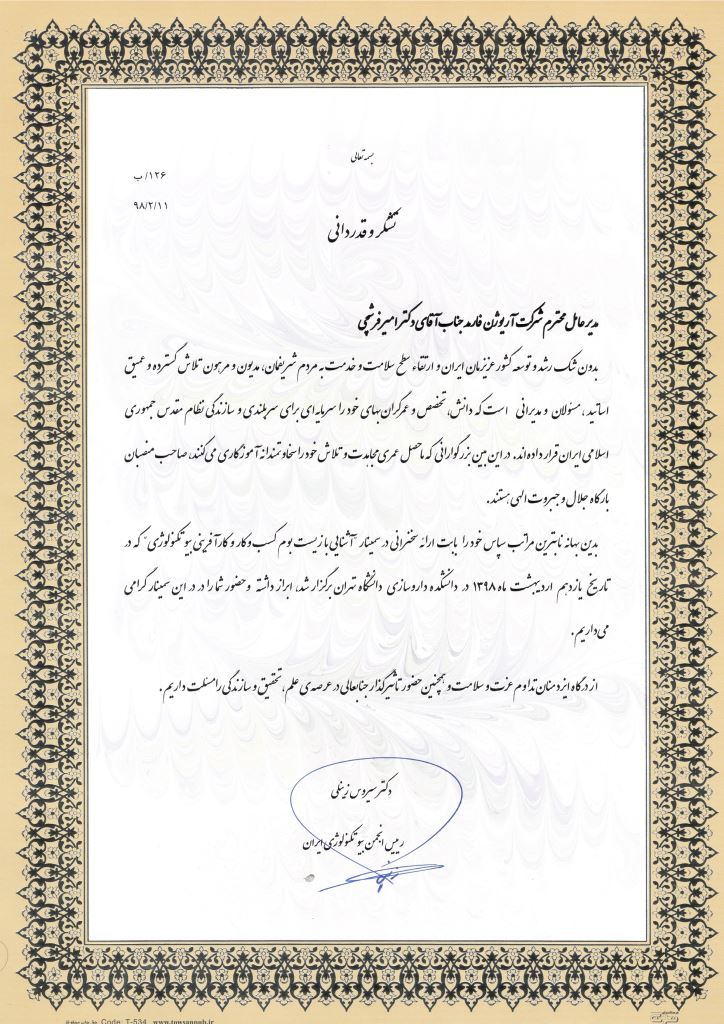 بسمه تعالی
۱۲۶/ ب
۹۸/۲/۱۱
تشکر و قدردانی
مدیر عامل محترم شرکت آریوژن فارمد جناب آقای دکتر امیر فرشچی
بدون شک رشد و توسعه کشور عزیزمان ایران و ارتقاء سطح سلامت و خدمت به مردم شریفمان، مدیون و مرهون تلاش گسترده و عمیق
اساتید، مسئولان و مدیرانی است که دانش، تخصص و عمر گرانبهای خود را سرمایه‌ای برای سربلندی و سازندگی نظام مقدس جمهوری
اسلامی ایران قرار داده‌اند. در این بین بزرگوارانی که ماحصل عمری مجاهدت و تلاش خود را سخاوتمندانه آموزگاری می‌کنند، صاحب منصبان
بارگاه جلال و جبروت الهی هستند.
بدین بهانه نابترین مراتب سپاس خود را بابت ارائه سخنرانی در سمینار "آشنایی با زیست بوم کسب و کار و کارآفرینی بیوتکنولوژی" که در
تاریخ یازدهم اردیبهشت ماه ۱۳۹۸ در دانشکده داروسازی دانشگاه تهران برگزار شد، ابراز داشته و حضور شما را در در این سمینار گرامی
می‌داریم.
از درگاه ایزد منان تداوم عزت و سلامت و همچنین حضور تاثیرگذار جنابعالی در عرصه‌ی علم، تحقیق و سازندگی را مسئلت داریم.
دکتر سیروس زینلی
رییس انجمن بیوتکنولوژی ایران
Code: T-534 www.towsannab.ir